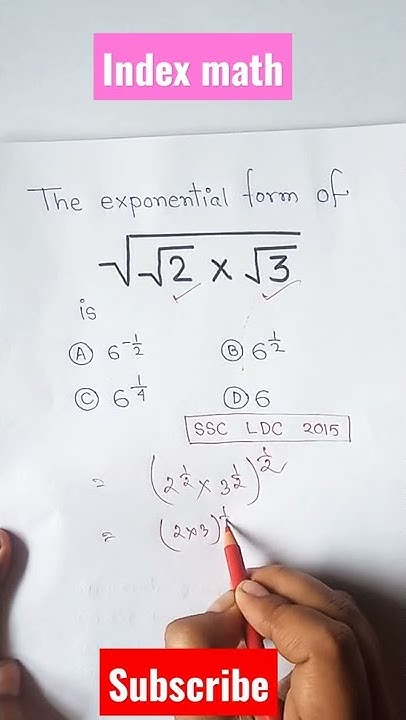 Index math
The exponential form of
√(√2 × √3)
is
Ⓐ 6^(-1/2) Ⓑ 6^(1/2)
Ⓒ 6^(1/4) Ⓓ 6
SSC LDC 2015
= (2^(1/2) × 3^(1/2))^(1/2)
= (2×3)
Subscribe